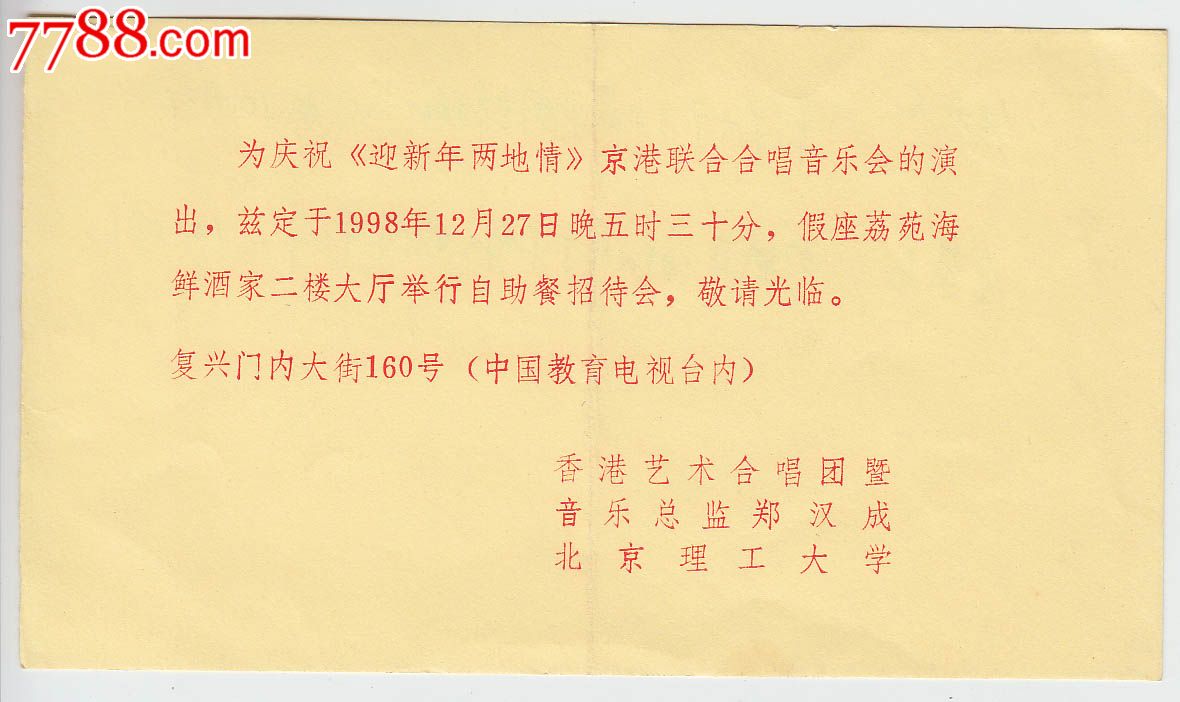 7788.com
为庆祝《迎新年两地情》京港联合合唱音乐会的演
出，兹定于1998年12月27日晚五时三十分，假座荔苑海
鲜酒家二楼大厅举行自助餐招待会，敬请光临。
复兴门内大街160号（中国教育电视台内）
香港艺术合唱团暨
音乐总监郑汉成
北京理工大学